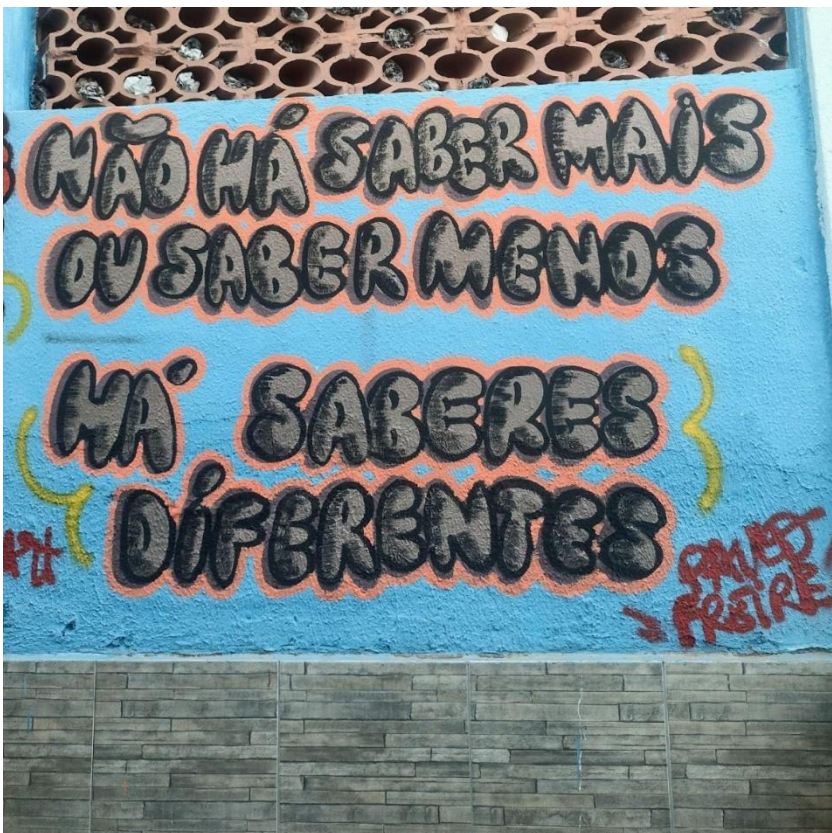 NÃO HÁ SABER MAIS
OU SABER MENOS
HÁ SABERES
DIFERENTES
PAULO
FREIRE